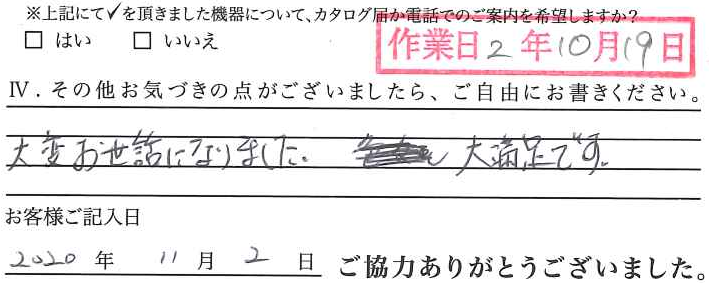 ※上記にて✓を頂きました機器について、カタログ届か電話でのご案内を希望しますか？
□ はい □ いいえ
作業日 2 年 10 月 19 日
Ⅳ．その他お気づきの点がございましたら、ご自由にお書きください。
大変お世話になりました。 大満足です。
お客様ご記入日
2020 年 11 月 2 日 ご協力ありがとうございました。